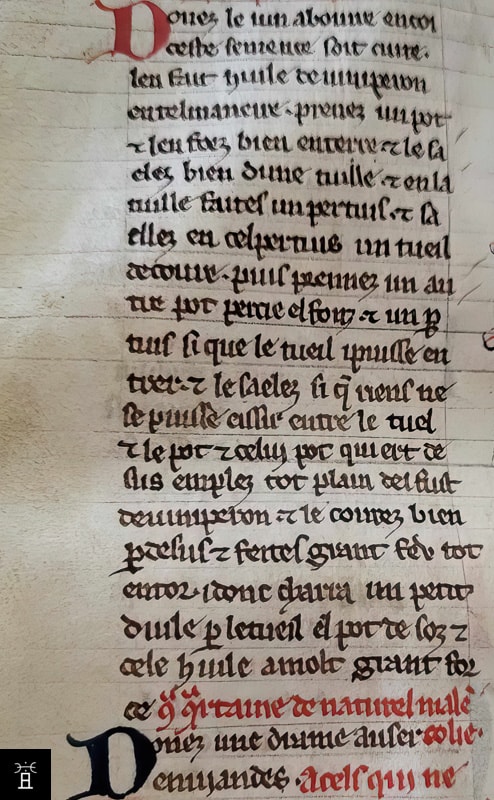 Donez le iun abouure encoi
ceste semence soit cuite.
len fait huile de iunipeion
en tel maneire. prenez un pot
⁊ leu soez bien en terre ⁊ le sa
elez bien dune tuille ⁊ en la
tuille faites un pertuis. ⁊ sa
ellez en cel pertuis un tueil
de couire. puis prennez un au
tre pot percie el fonz ⁊ un p̲
tuis si que le tueil ipuisse en
trer. ⁊ le saelez si q̄ riens ne
se puisse eissir entre le tuel
⁊ le pot ⁊ celui pot qui ert de
sus emplez tot plain del fust
de iuniperon ⁊ le courez bien
p̲ desus ⁊ feites grant fev tot
entor. idonc charra un petit
duile p̲ le tueil el pot de soz ⁊
cele huile a molt grant for
ce
Donez une dragme auser